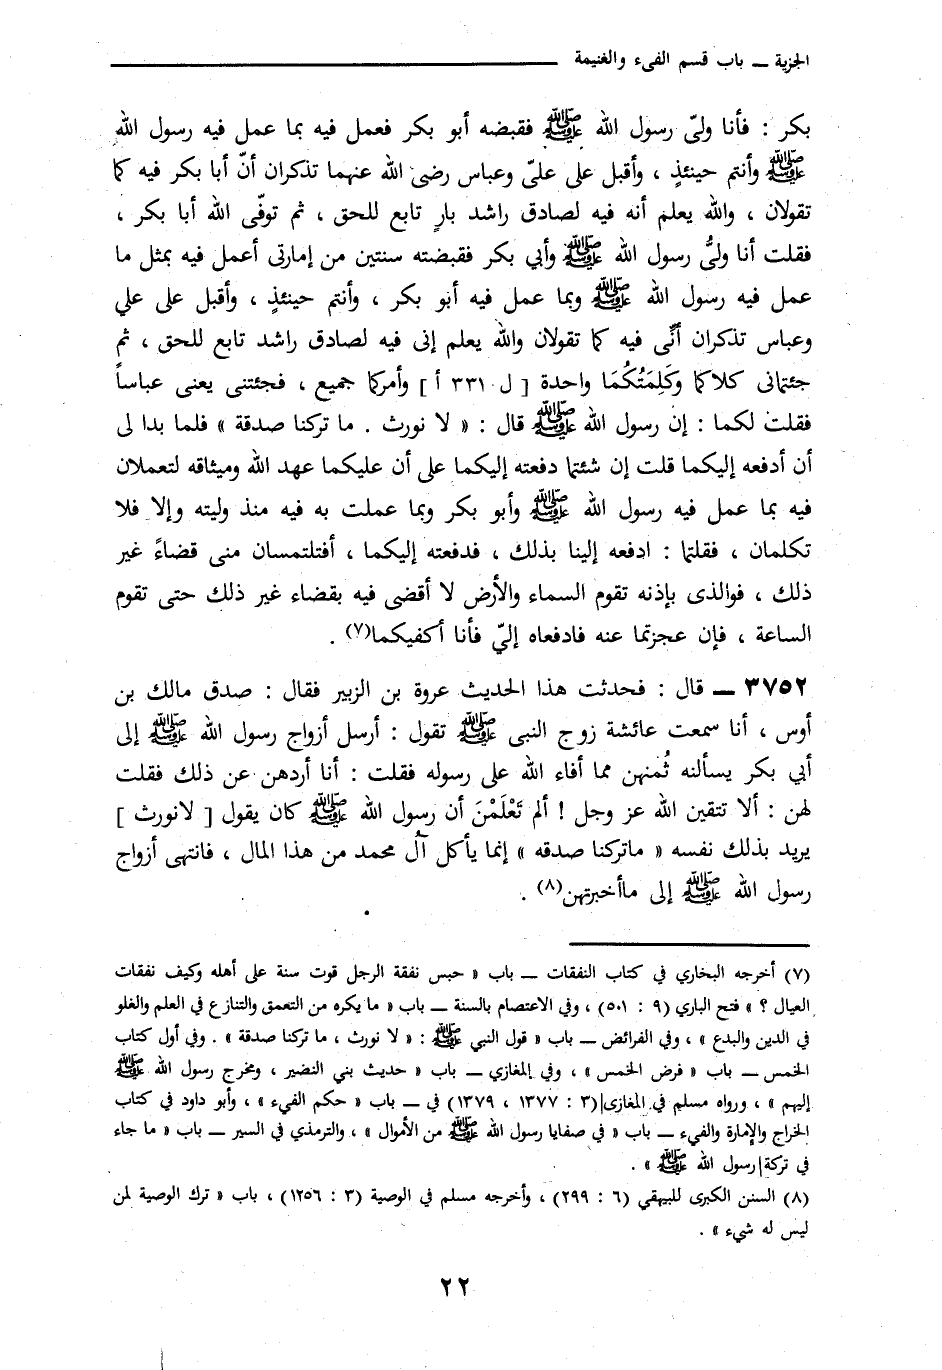 الجزية ــ باب قسم الفىء والغنيمة
بكر : فأنا ولىّ رسول الله ﷺ فقبضه أبو بكر فعمل فيه بما عمل فيه رسول الله
ﷺ وأنتم حينئذٍ ، وأقبل على علىّ وعباس رضى الله عنهما تذكران أنّ أبا بكر فيه كما
تقولان ، والله يعلم أنه فيه لصادق راشد بارٍ تابع للحق ، ثم توفّى الله أبا بكر ،
فقلت أنا ولىُّ رسول الله ﷺ وأبي بكر فقبضته سنتين من إمارتى أعمل فيه بمثل ما
عمل فيه رسول الله ﷺ وبما عمل فيه أبو بكر ، وأنتم حينئذٍ ، وأقبل على علي
وعباس تذكران أنِّى فيه كما تقولان والله يعلم إنى فيه لصادق راشد تابع للحق ، ثم
جئتمانى كلاكما وكَلِمَتُكُمَا واحدة [ ل ٣٣١ أ ] وأمركما جميع ، فجئتنى يعنى عباساً
فقلت لكما : إن رسول الله ﷺ قال : « لا نورث . ما تركنا صدقة » فلما بدا لى
أن أدفعه إليكما قلت إن شئتما دفعته إليكما على أن عليكما عهد الله وميثاقه لتعملان
فيه بما عمل فيه رسول الله ﷺ وأبو بكر وبما عملت به فيه منذ وليته وإلا فلا
تكلمان ، فقلتما : ادفعه إلينا بذلك ، فدفعته إليكما ، أفتلتمسان منى قضاءً غير
ذلك ، فوالذى بإذنه تقوم السماء والأرض لا أقضى فيه بقضاء غير ذلك حتى تقوم
الساعة ، فإن عجزتما عنه فادفعاه إليّ فأنا أكفيكما(٧) .
٣٧٥٢ ــ قال : فحدثت هذا الحديث عروة بن الزبير فقال : صدق مالك بن
أوس ، أنا سمعت عائشة زوج النبى ﷺ تقول : أرسل أزواج رسول الله ﷺ إلى
أبي بكر يسألنه ثُمنهن مما أفاء الله على رسوله فقلت : أنا أردهن عن ذلك فقلت
لهن : ألا تتقين الله عز وجل ! ألم تَعْلَمْنَ أن رسول الله ﷺ كان يقول [ لانورث ]
يريد بذلك نفسه « ماتركنا صدقه » إنما يأكل آل محمد من هذا المال ، فانتهى أزواج
رسول الله ﷺ إلى ماأخبرتهن(٨) .
(٧) أخرجه البخاري في كتاب النفقات ــ باب « حبس نفقة الرجل قوت سنة على أهله وكيف نفقات
العيال ؟ » فتح الباري (٩ : ٥٠١) ، وفي الاعتصام بالسنة ــ باب « ما يكره من التعمق والتنازع في العلم والغلو
في الدين والبدع » ، وفي الفرائض ــ باب « قول النبي ﷺ : « لا نورث ، ما تركنا صدقة » . وفي أول كتاب
الخمس ــ باب « فرض الخمس » ، وفي المغازي ــ باب « حديث بني النضير ، ومخرج رسول الله ﷺ
إليهم » ، ورواه مسلم في المغازى (٣ : ١٣٧٧ ، ١٣٧٩) في ــ باب « حكم الفيء » ، وأبو داود في كتاب
الخراج والإمارة والفيء ــ باب « في صفايا رسول الله ﷺ من الأموال » ، والترمذي في السير ــ باب « ما جاء
في تركة رسول الله ﷺ » .
(٨) السنن الكبرى للبيهقي (٦ : ٢٩٩) ، وأخرجه مسلم في الوصية (٣ : ١٢٥٦) ، باب « ترك الوصية لمن
ليس له شيء » .
٢٢